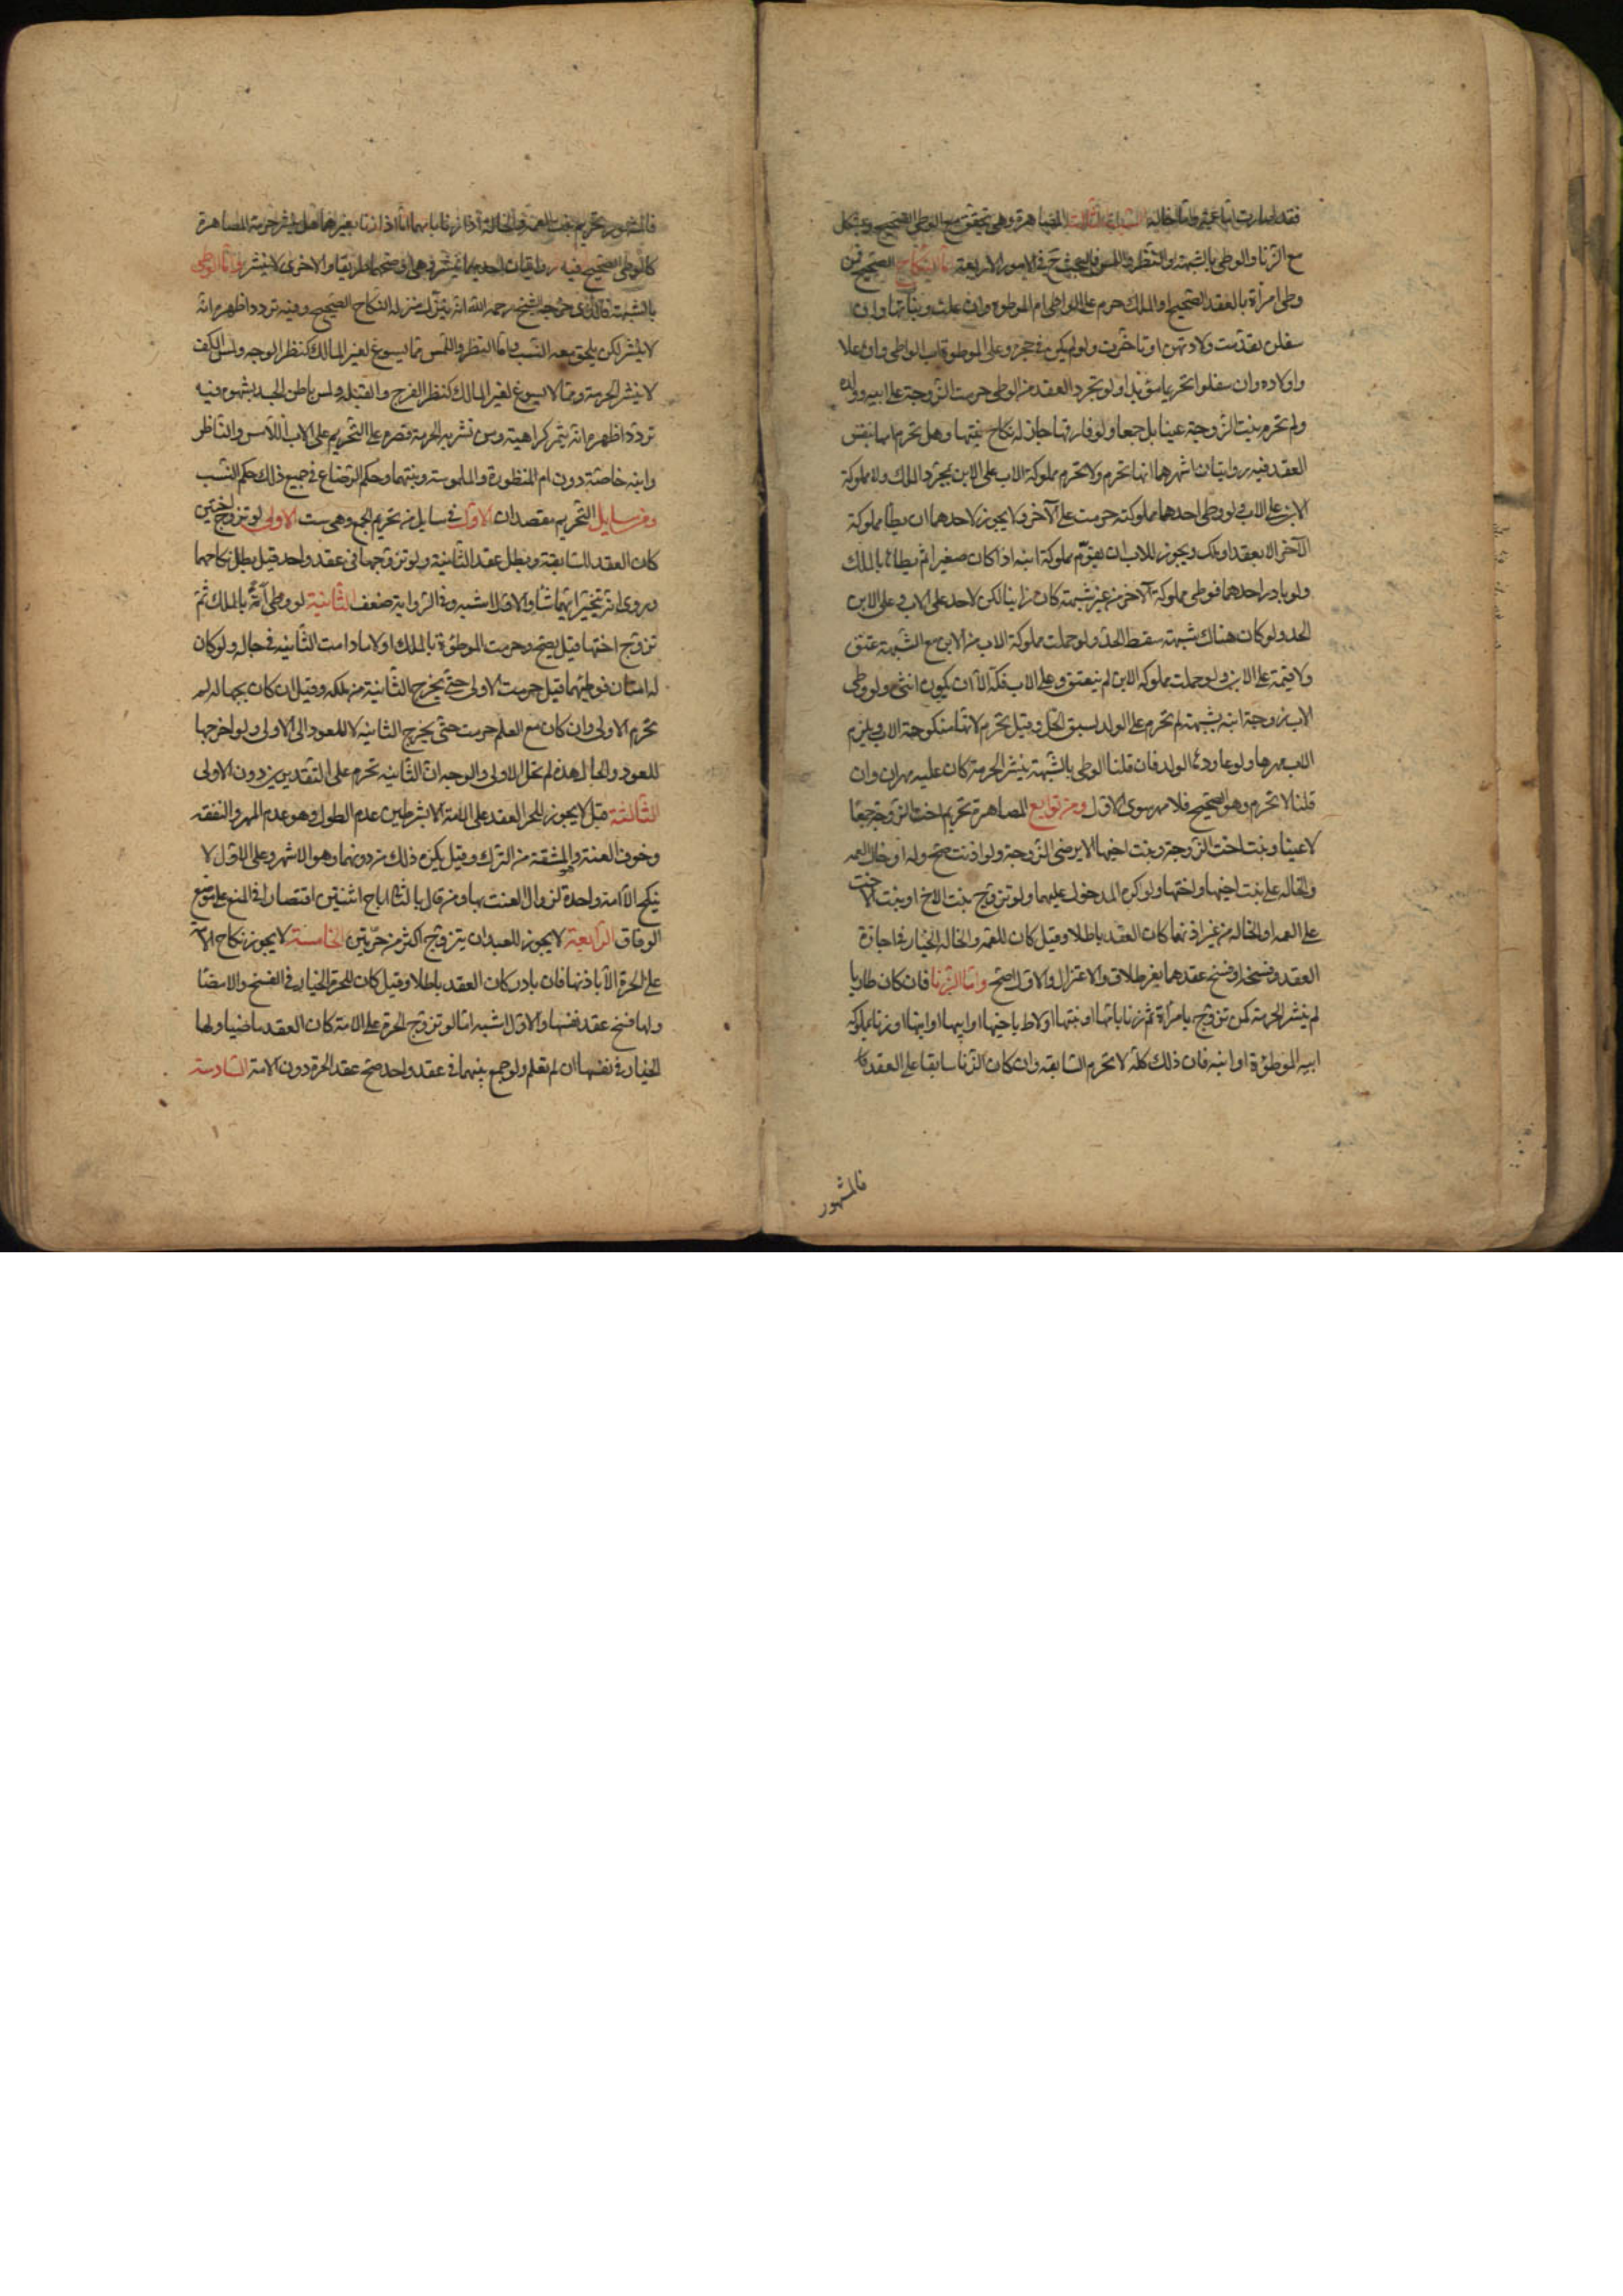 فقد صارت امّا عمته وامّا خالته السبب الثالث المصاهرة وهي تتحقق مع الوطي الصحيح ويشكل
مع الزنا والوطي بالشبهة والنظر واللمس فالبحث ح في الامور الاربعة امّا النكاح الصحيح فمن
وطي امرأة بالعقد الصحيح او الملك حرم على الواطي ام الموطوءة وان علت وبناتها وان
سفلن تقدّمت ولادتهن او تاخرت ولو لم يكن في حجره وعلى الموطوءة اب الواطي وان علا
واولاده وان سفلوا تحريما مؤبدا ولو تجرد العقد من الوطي حرمت الزوجة على ابيه وولده
ولم تحرم بنت الزوجة عينا بل جمعا ولو فارقها جاز له نكاح بنتها وهل تحرم امها بنفس
العقد فيه روايتان اشهرهما انها تحرم ولا تحرم مملوكة الاب على الابن بمجرد الملك ولا مملوكة
الابن على الاب ولو وطي احدهما مملوكته حرمت على الآخر ولا يجوز لاحدهما ان يطأ مملوكة
الآخر الا بعقد او ملك ويجوز للاب ان يقوّم مملوكة ابنه اذا كان صغيرا ثم يطاها بالملك
ولو بادر احدهما فوطي مملوكة الآخر من غير شبهة كان زانيا لكن لا حد على الاب وعلى الابن
الحد ولو كان هناك شبهة سقط الحدّ ولو حملت مملوكة الاب من الابن مع الشبهة عتق
ولا قيمة على الابن ولو حملت مملوكة الابن لم ينعتق وعلى الاب فكّه الا ان يكون انثى ولو وطي
الاب زوجة ابنه بشبهة لم تحرم على الولد لسبق الحل وقيل تحرم لانها منكوحة الاب ويلزم
الاب مهرها ولو عاودها الولد فان قلنا الوطي بالشبهة ينشر الحرمة كان عليه مهران وان
قلنا لا تحرم وهو الصحيح فلا مهر سوى الاول ومن توابع المصاهرة تحريم اخت الزوجة جمعا
لا عينا وبنت اخت الزوجة وبنت اخيها الا برضى الزوجة ولو اذنت صح وله ادخال العمه
والخاله على بنت اخيها واختها ولو كره المدخول عليهما ولو تزوج بنت الاخ او بنت الاخت
على العمه او الخاله من غير اذنهما كان العقد باطلا وقيل كان للعمة والخالة الخيار في اجازة
العقد وفسخه او فسخ عقدهما بغير طلاق والاعتزال والاول اصح وامّا الزنا فان كان طاريا
لم ينشر الحرمة كمن تزوج بامرأة ثم زنا بامّها او بنتها او لاط باخيها او ابيها او ابنها او زنا بمملوكة
ابيه الموطوءة او ابنه فان ذلك كله لا تحرم السابقه وان كان الزنا سابقا على العقد
فالمشهور
فالمشهور تحريم بنت العمة والخالة اذا زنا بامهما امّا اذا زنا بغيرهما هل ينشر حرمة المصاهرة
كالوطي الصحيح فيه روايتان احديهما ينشر وهي اوضحهما طريقا والاخرى لا ينشر وامّا الوطي
بالشبهة فالذي خرجه الشيخ رحمه الله انه ينزل منزلة النكاح الصحيح وفيه تردد اظهره انّه
لا ينشر لكن يلحق معه النسب وامّا النظر واللمس فما يسوغ لغير المالك كنظر الوجه ولمس الكف
لا ينشر الحرمة وما لا يسوغ لغير المالك كنظر الفرج والقبلة ولمس باطن الجسد بشهوه فيه
تردد اظهره انّه يثمر كراهية ومن نشر به الحرمة قصره على التحريم على الاب اللامس والناظر
وابنه خاصّة دون ام المنظورة والملموسة وبنتهما وحكم الرضاع في جميع ذلك حكم النسب
ومن مسايل التحريم مقصدان الاول في مسايل من تحريم الجمع وهي ست الاولى لو تزوج اختين
كان العقد للسابقة وبطل عقد الثانية ولو تزوجهما في عقد واحد قيل بطل نكاحهما
وروي انه يتخيّر ايّهما شاء والاول اشبه وفي الرواية ضعف الثانية لو وطي امة بالملك ثم
تزوج اختها قيل يصح وحرمت الموطوءة بالملك اولا ما دامت الثانيه في حاله ولو كان
له امتان فوطئهما قيل حرمت الاولى حتى تخرج الثانية من ملكه وقيل ان كان بجهالة لم
تحرم الاولى وان كان مع العلم حرمت حتى يخرج الثانيه لا للعود الى الاولى ولو اخرجها
للعود والحال هذه لم تحل الاولى والوجه ان الثانيه تحرم على التقديرين دون الاولى
الثالثة قيل لا يجوز للحر العقد على الامة الا بشرطين عدم الطول وهو عدم المهر والنفقه
وخوف العنت وهو المشقه من الترك وقيل يكره ذلك من دونهما وهو الاشهر وعلى الاول لا
ينكح الا امة واحدة لزوال العنت بها ومن قال بالثاني اباح اثنتين اقتصارا في المنع على موضع
الوفاق الرابعة لا يجوز للعبد ان يتزوج اكثر من حرّتين الخامسة لا يجوز نكاح الامة
على الحرة الا باذنها فان بادر كان العقد باطلا وقيل كان للحرة الخيار في الفسخ والامضا
ولها فسخ عقد نفسها والاول اشبه امّا لو تزوج الحرة على الامة كان العقد ماضيا ولها
الخيار في نفسها ان لم تعلم ولو جمع بينهما في عقد واحد صح عقد الحرة دون الامة السادسة